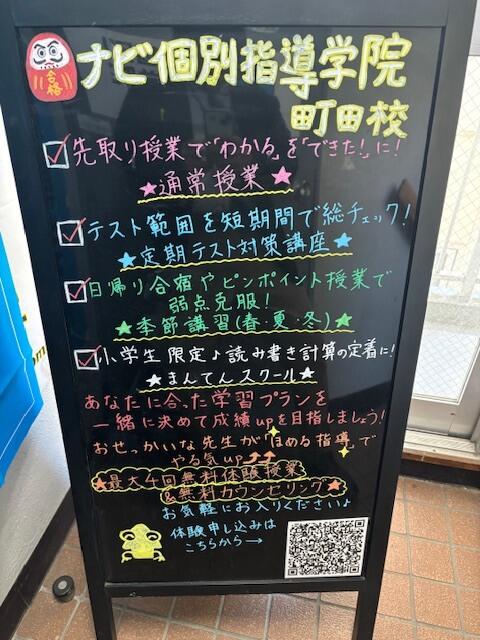 合格
ナビ個別指導学院
町田校
先取り授業で「わかる」を「できた!」に!
★通常授業★
テスト範囲を短期間で総チェック!
★定期テスト対策講座★
日帰り合宿やピンポイント授業で
弱点克服!
★季節講習(春・夏・冬)★
小学生限定♪読み書き計算の定着に!
★まんてんスクール★
あなたに合った学習プランを
一緒に決めて成績upを目指しましょう!
おせっかいな先生が「ほめる指導」で
やる気up⤴⤴
★最大4回無料体験授業
&無料カウンセリング★
お気軽にお入りください♪
体験申し込みは
こちらから→